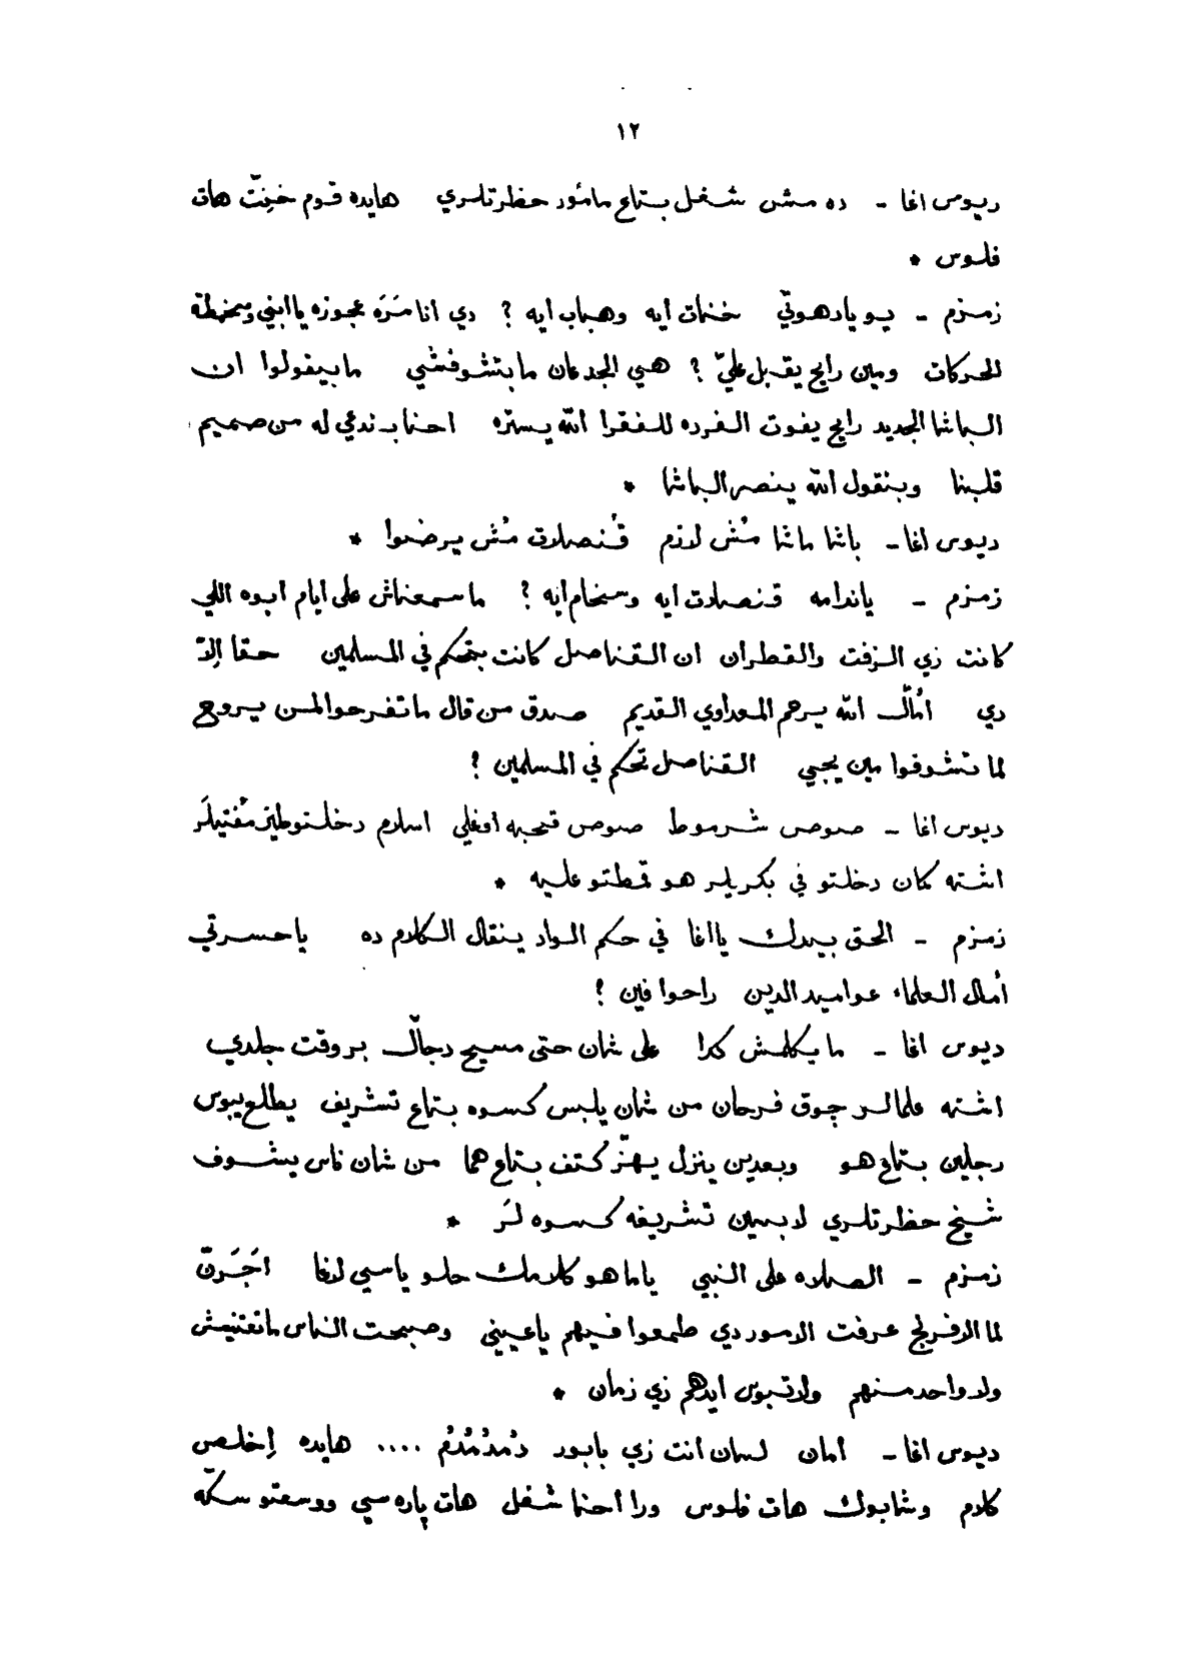 ١٢
ديوس اغا - ده مش شغل بتاع مأمور حظرتلري هايده قوم خنِتّ هات
فلوس *
زمزم - يو يادهوتي خنات ايه وهباب ايه ؟ دي انا مَرَه عجوزه ياابني
الحركات ومين رايح يقبل عليّ ؟ هي الجدعان مابتشوفشي مابيقولوا ان
الباشا الجديد رايح يفوت الفرده للفقرا الله يستره احنا بندعي له من صميم
قلبنا وبنقول الله ينصر الباشا *
ديوس اغا - باشا ماشا مُش لازم قُنصلات مُش يرضوا *
زمزم - ياندامه قنصلات ايه وسخام ايه ؟ ماسمعناش على ايام ابوه اللي
كانت زي الزفت والقطران ان القناصل كانت بتحكم في المسلمين حقا اِلاّ
دي اُمّال الله يرحم المعداوي القديم صدق من قال ماتفرحوا لمن يروح
لما تشوفوا مين يجيي القناصل تحكم في المسلمين ؟
ديوس اغا - صوص شرموط صوص قحبه اوغلي اسلام دخلتوطين مُفتيلَر
اشته كمان دخلتو في بكريلر هو قطتو عليه *
زمزم - الحق بيدك يااغا في حكم الواد ينقال الكلام ده ياحسرتي
أمال العلماء عواميد الدين راحوا فين ؟
ديوس اغا - مايكلمش كدا على شان حتى مسيح دجّال بروقت جلدي
اشته علمالر چوق فرحان من شان يلبس كسوه بتاع تشريف يطلع يبوس
رجلين بتاع هو وبعدين ينزل يهزّ كتف بتاع هما من شان ناس يشوف
شيخ حظرتلري لابسين تشريفه كسوه لَر *
زمزم - الصلاه على النبي ياما هو كلامك حلو ياسي لاغا اَجَرَنّ
لما الافرنج عرفت الامور دي طمعوا فيهم ياعيني وصبحت الناس ماتعتنيش
ولا واحد منهم ولا تبوس ايدهم زي زمان *
ديوس اغا - امان لسان انت زي بابور دُمدُمدُم .... هايده اِخلص
كلام وشابوك هات فلوس ورا احنا شغل هات پاره سي ووسعتو سكّه